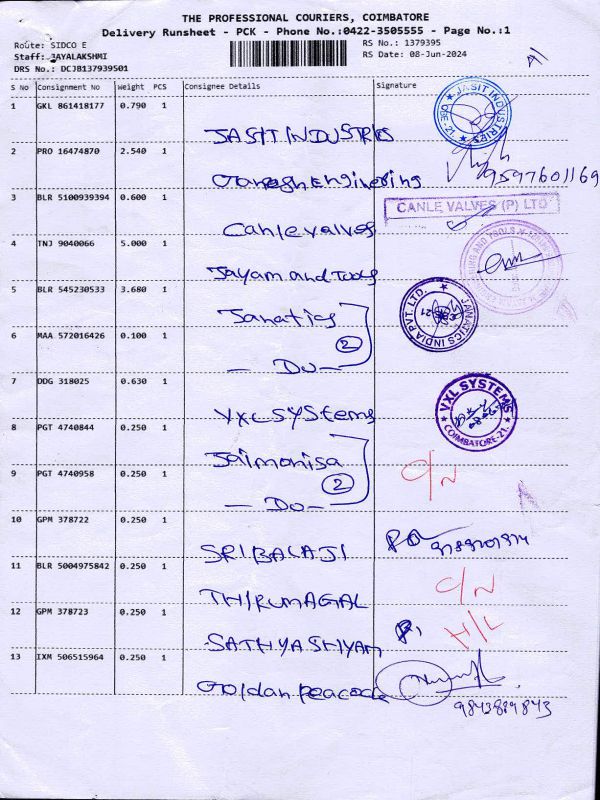 THE PROFESSIONAL COURIERS, COIMBATORE
Delivery Runsheet - PCK - Phone No.:0422-3505555 - Page No.:1
Route: SIDCO E
RS No.: 1379395
Staff: JAYALAKSHMI
RS Date: 08-Jun-2024
DRS No.: DCJB137939501
S No Consignment No Weight PCS Consignee Details Signature
1 GKL 861418177 0.790 1 JASIT INDUSTRIES
JASIT INDUSTRIES
CBE-21.
2 PRO 16474870 2.540 1 Ganesh Engineering 9597601169
3 BLR 5100939394 0.600 1 Canle valves
CANLE VALVES (P) LTD
4 TNJ 9040066 5.000 1 Jayam and Tools
5 BLR 545230533 3.680 1 Janatics
JANATICS INDIA PVT. LTD.
2
6 MAA 572016426 0.100 1 - Do -
7 DDG 318025 0.630 1 VXL SYStems
VXL SYSTEMS
COIMBATORE-21.
8 PGT 4740844 0.250 1 Jaimonisa
2
C/N
9 PGT 4740958 0.250 1 - Do -
10 GPM 378722 0.250 1 SRI BALAJI
11 BLR 5004975842 0.250 1 THIRUMAGAL C/N
12 GPM 378723 0.250 1 SATHYASHIYAM H/L
13 IXM 506515964 0.250 1 Goldan peacock